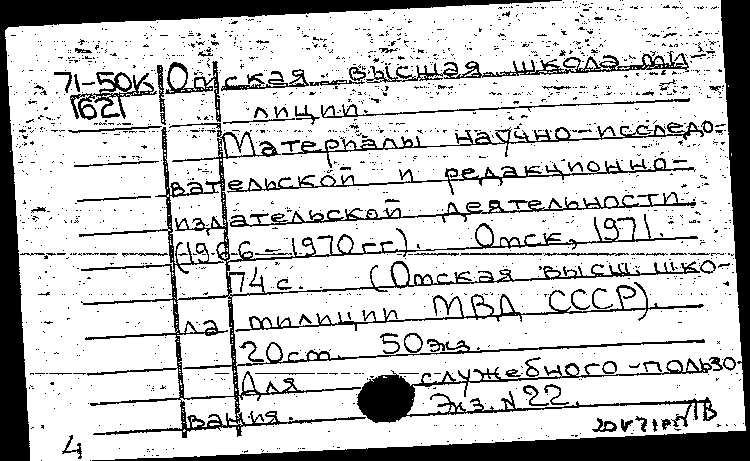 71-50К Омская высшая школа ми-
1621 лиции.
Материалы научно-исследо-
вательской и редакционно-
издательской деятельности
(1966-1970гг). Омск, 1971.
74 с. (Омская высш. шко-
ла милиции МВД СССР).
20см. 50экз.
Для служебного пользо-
вания. Экз. N 22.
4